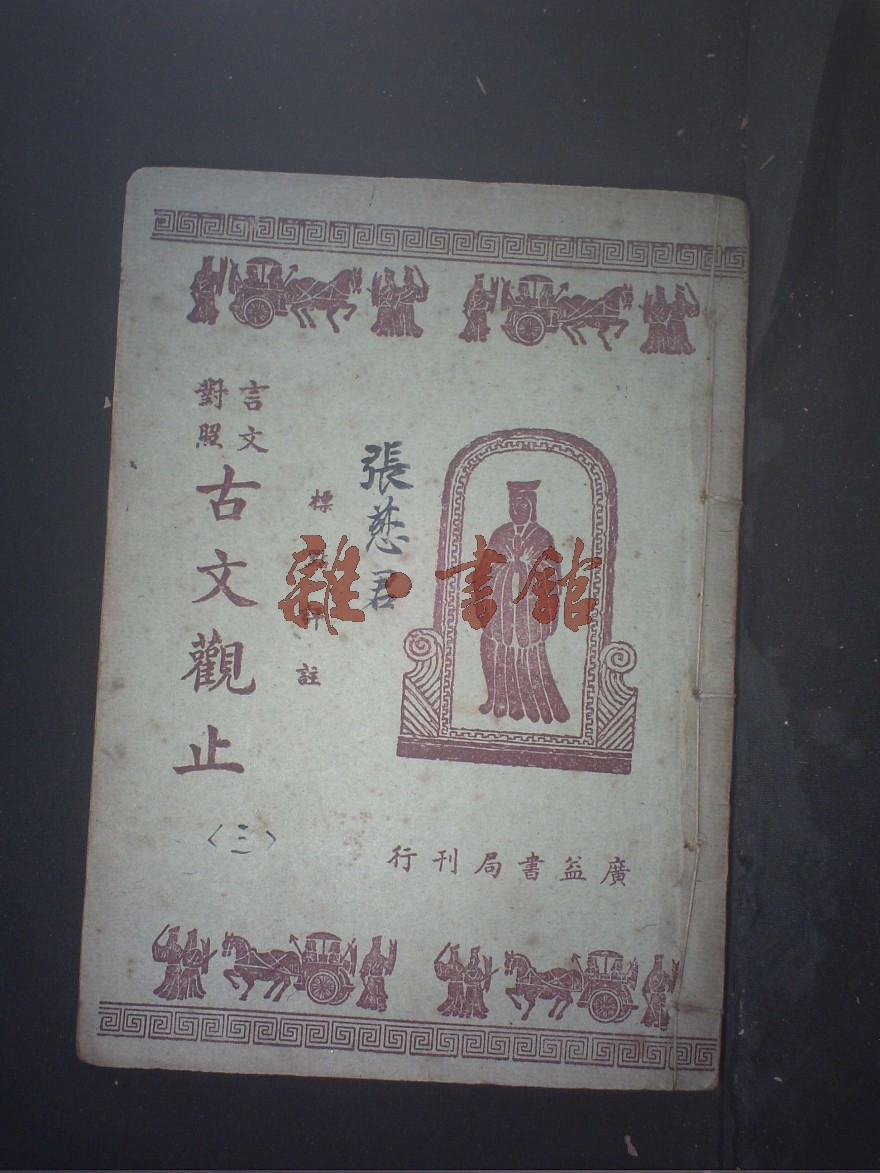 言文
對照
古文觀止
〈三〉
標點評註
張慈君
雜·書館
廣益書局刊行